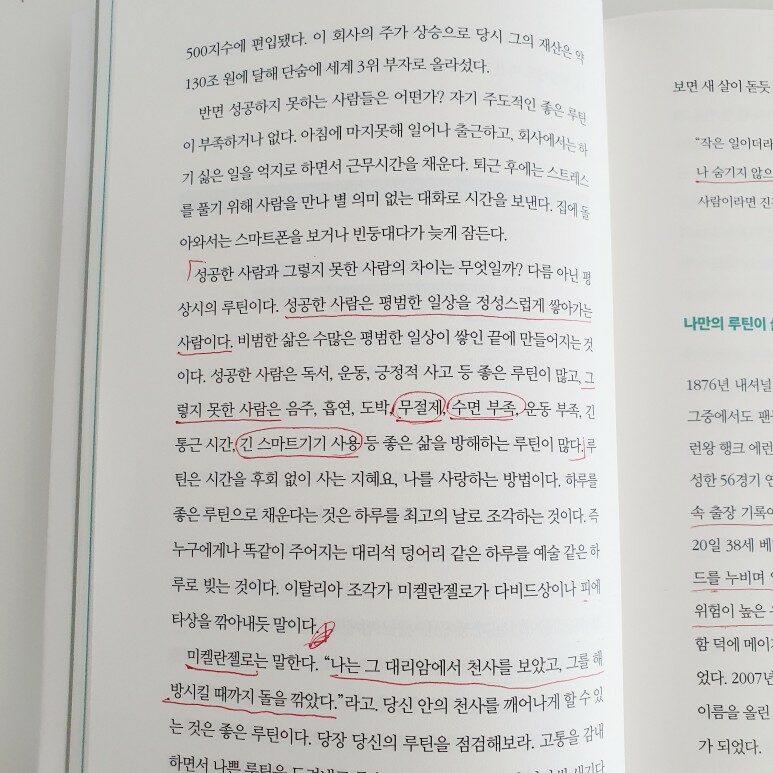 500지수에 편입됐다. 이 회사의 주가 상승으로 당시 그의 재산은 약
130조 원에 달해 단숨에 세계 3위 부자로 올라섰다.
반면 성공하지 못하는 사람들은 어떤가? 자기 주도적인 좋은 루틴
이 부족하거나 없다. 아침에 마지못해 일어나 출근하고, 회사에서는 하
기 싫은 일을 억지로 하면서 근무시간을 채운다. 퇴근 후에는 스트레스
를 풀기 위해 사람을 만나 별 의미 없는 대화로 시간을 보낸다. 집에 돌
아와서는 스마트폰을 보거나 빈둥대다가 늦게 잠든다.
성공한 사람과 그렇지 못한 사람의 차이는 무엇일까? 다름 아닌 평
상시의 루틴이다. 성공한 사람은 평범한 일상을 정성스럽게 쌓아가는
사람이다. 비범한 삶은 수많은 평범한 일상이 쌓인 끝에 만들어지는 것
이다. 성공한 사람은 독서, 운동, 긍정적 사고 등 좋은 루틴이 많고, 그
렇지 못한 사람은 음주, 흡연, 도박, 무절제, 수면 부족, 운동 부족, 긴
통근 시간, 긴 스마트기기 사용 등 좋은 삶을 방해하는 루틴이 많다. 루
틴은 시간을 후회 없이 사는 지혜요, 나를 사랑하는 방법이다. 하루를
좋은 루틴으로 채운다는 것은 하루를 최고의 날로 조각하는 것이다. 즉
누구에게나 똑같이 주어지는 대리석 덩어리 같은 하루를 예술 같은 하
루로 빚는 것이다. 이탈리아 조각가 미켈란젤로가 다비드상이나 피에
타상을 깎아내듯 말이다.
미켈란젤로는 말한다. “나는 그 대리암에서 천사를 보았고, 그를 해
방시킬 때까지 돌을 깎았다.”라고. 당신 안의 천사를 깨어나게 할 수 있
는 것은 좋은 루틴이다. 당장 당신의 루틴을 점검해보라. 고통을 감내
하면서 나쁜 루틴을
보면 새 살이 돋듯
“작은 일이더라
나 숨기지 않으
사람이라면 진
나만의 루틴이
1876년 내셔널
그중에서도 팬
런왕 행크 에런
성한 56경기 연
속 출장 기록
20일 38세 베
드를 누비며
위험이 높은
함 덕에 메이
었다. 2007년
이름을 올린
가 되었다.